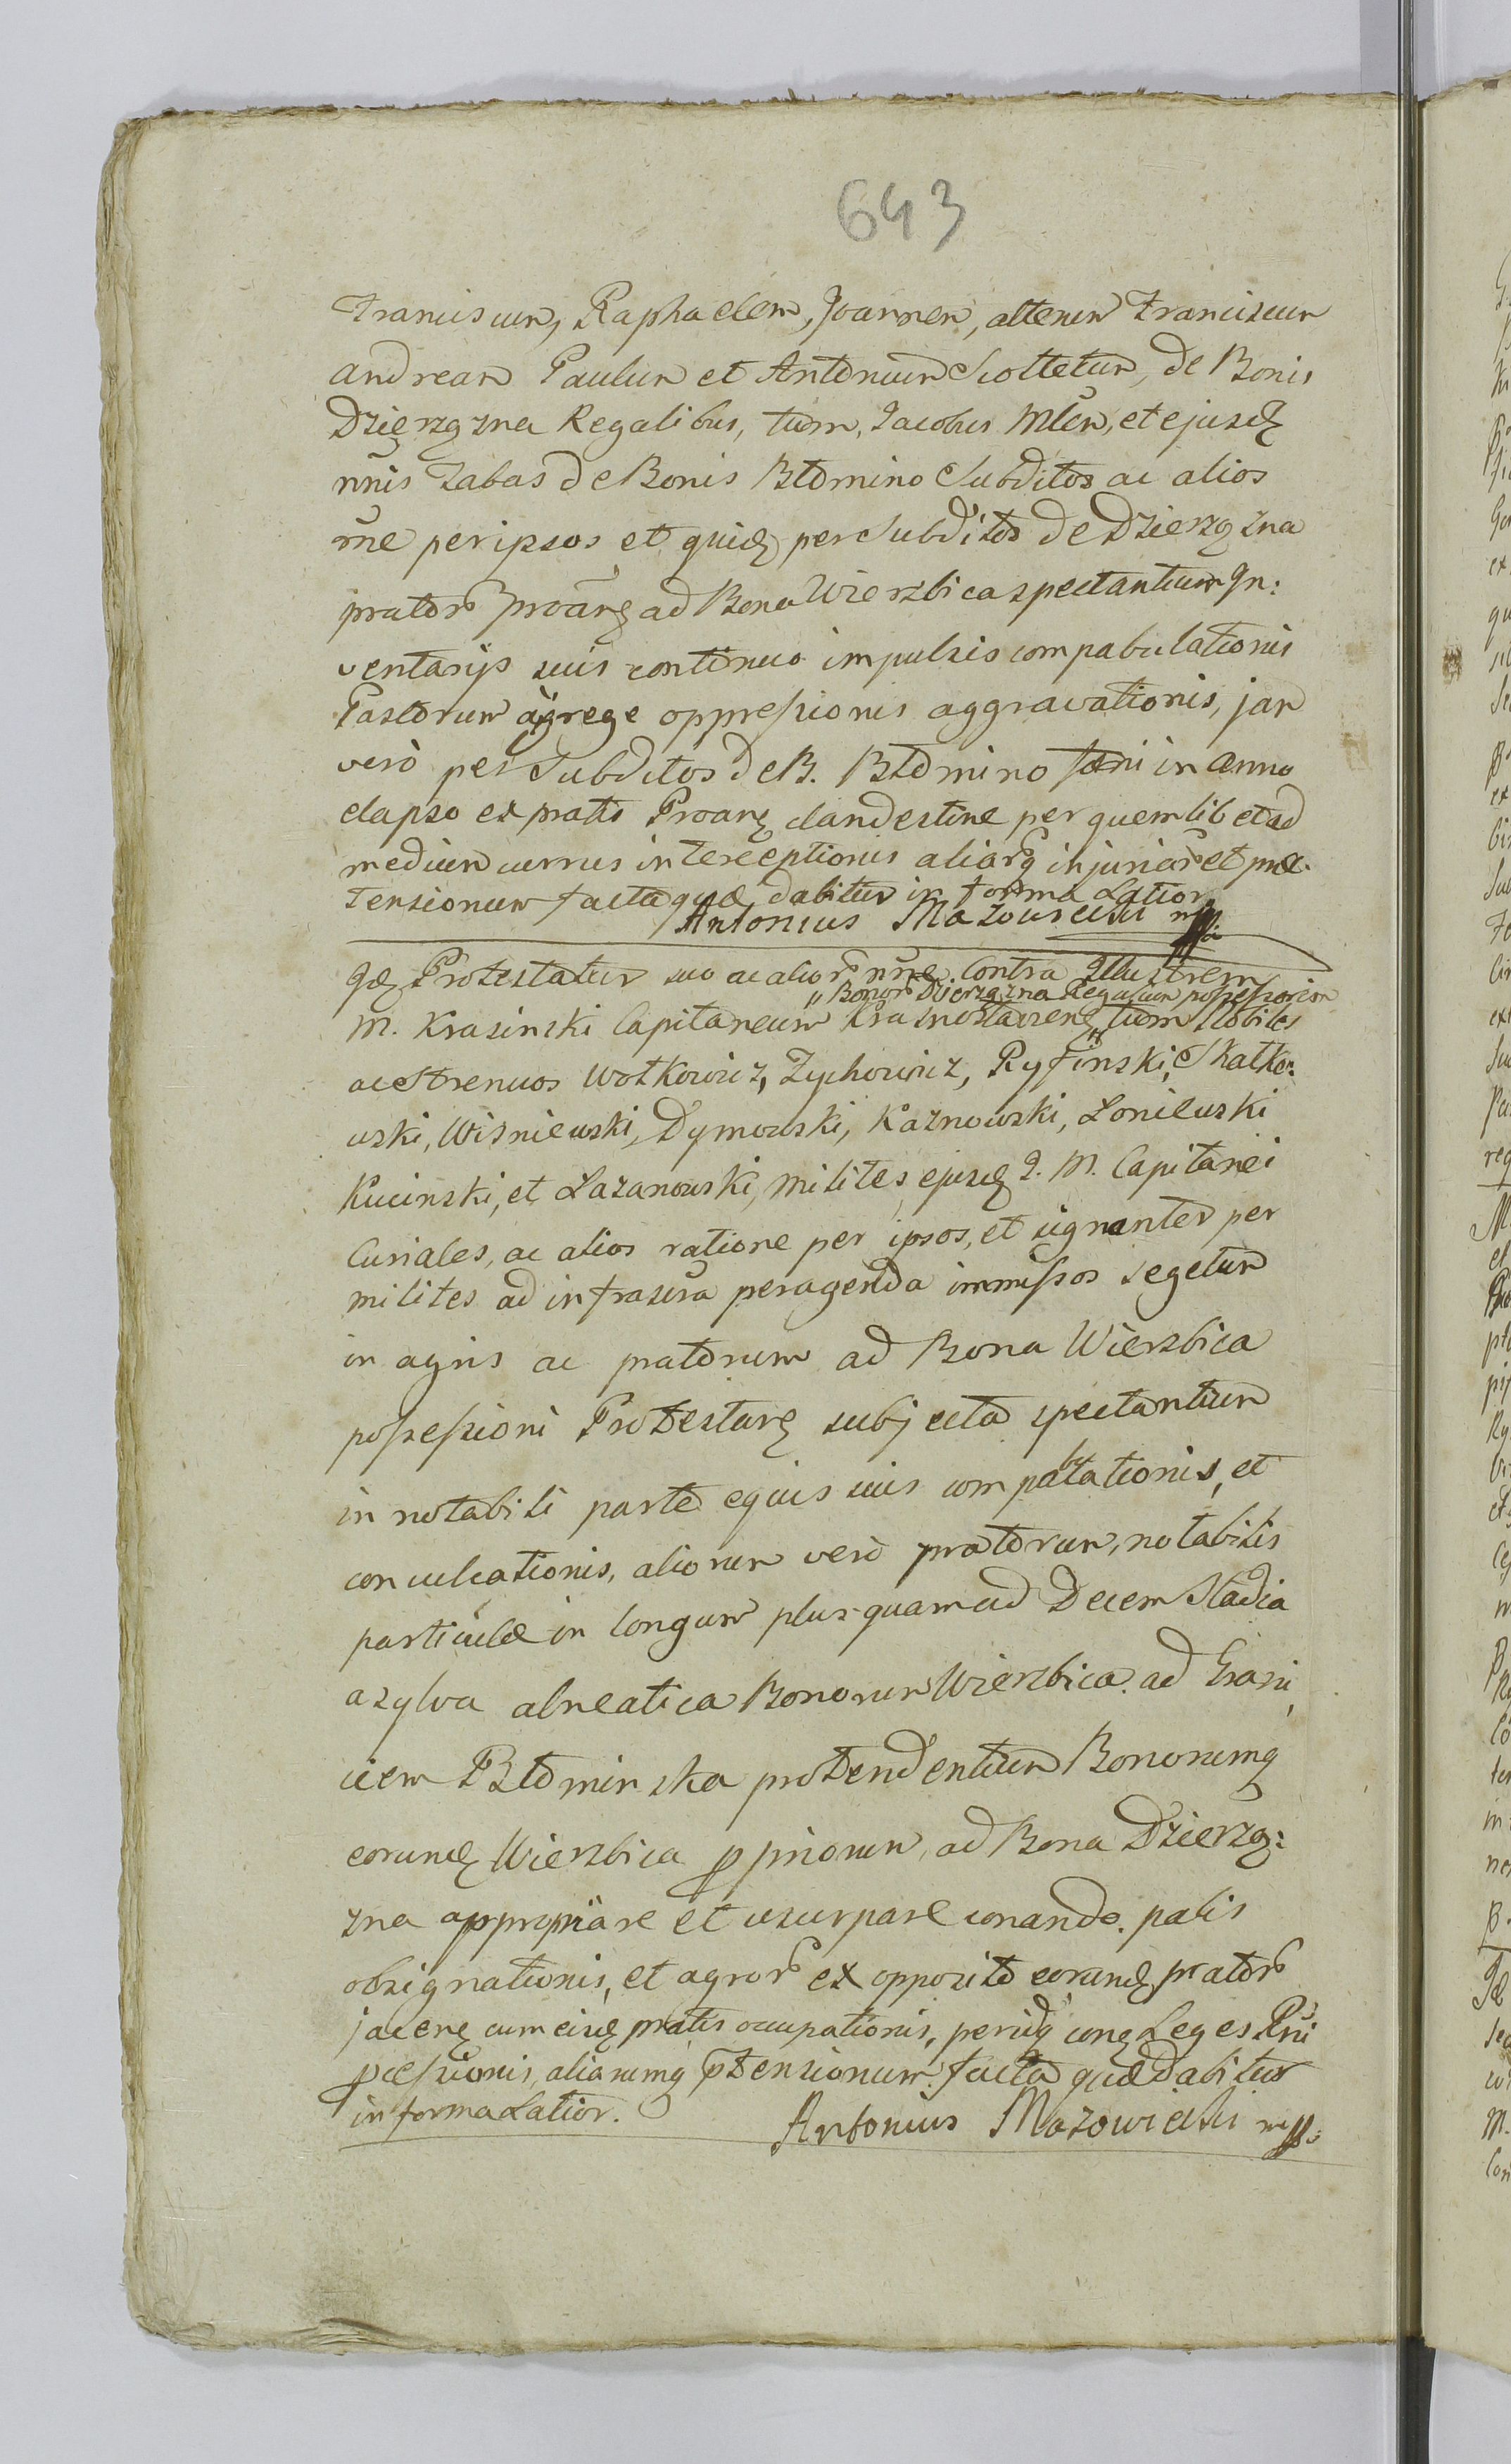 643
Franciscum, Raphaelem, Joannem, alterum Franciscum
Andream Paulum et Antonium Scoltetum, de Bonis
Dzierzązna Regalibus, tum, Jacobus Mlen, et ejusdę
nnis Zabas de Bonis Btomino Subditos ac alios
rne per ipsos et quidę per Subditos de Dzierzązna
prator Proarę ad Bona Wierzbica spectantium In:
ventarijs suis continuo impulsis compabulationis
Pastorum a grege oppressionis aggravationis, jam
verò per Subditos de B. Btomino fæni in anno
elapso ex pratis Proarę clandestine per quemlibet ad
medium currus interceptionis aliarq injuriar et præ
tensionum facta quæ dabitur in forma Latior
Antonius Mazowiecki mpp.
Idę Protestatur suo ac alior nnę Contra Illustrem
„Bonor Dzierzązna Regalium possessorem
M. Krasinski Capitaneum Krasnostavienę „ tum Nobiles
ac Strenuos Wotkowicz, Zychowicz, Ryfinski, Skatko:
wski, Wisniewski, Dymowski, Kaznowski, Loniewski
Kucinski, et Lazanowski, milites ejusdę I. M. Capitanei
Curiales, ac alios ratione per ipsos, et signanter per
milites ad infrascra peragenda immissos segetum
in agris ac pratorum ad Bona Wierzbica
possessioni Protestarę subjecta spectantium
in notabili parte equis suis compabulationis, et
conculcationis, aliorum verò pratorum, notabilis
particulæ in longum plusquam ad Decem Stadia
a sylva alneatica Bonorum Wierzbica ad Grani
ciem Btominska protendentium Bonorumq
eorundę Wierzbica ppriorum, ad Bona Dzierzą:
zna appropriare et usurpare conando palis
obsignationis, et agror ex opposito eorundę prator
jacenę cum eisdę pratis occupationis, peridq conę Leges Pni
pcessionis, aliarumq ptensionum facta quæ dabitur
in forma Latior.
Antonius Mazowiecki mpp.